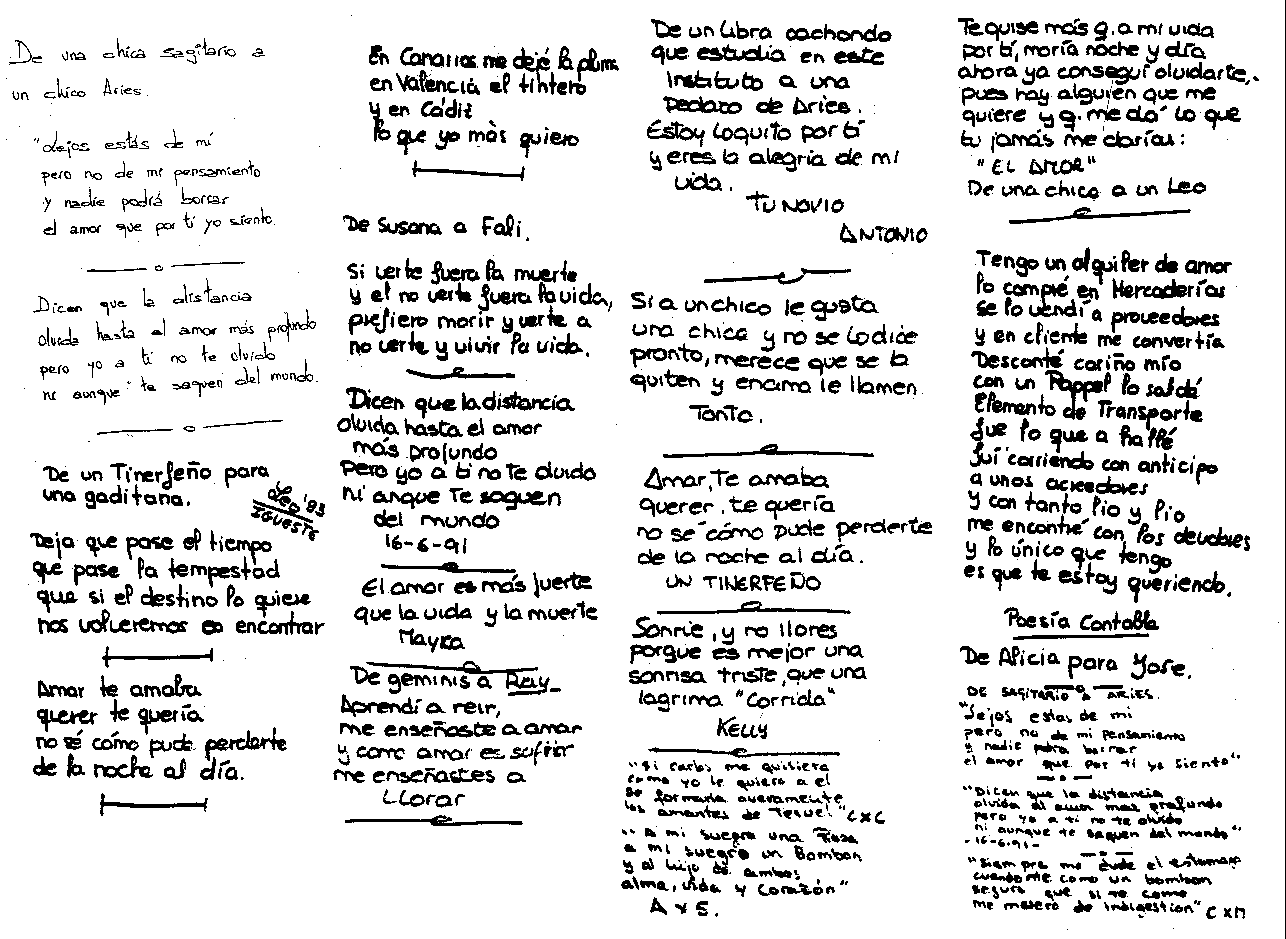 De una chica sagitario a
un chico Aries.
"Lejos estás de mí
pero no de mi pensamiento
y nadie podrá borrar
el amor que por tí yo siento.
Dicen que la distancia
olvida hasta el amor más profundo
pero yo a tí no te olvido
ni aunque te saquen del mundo.
De un Tinerfeño para
una gaditana.
Leo '93
IGUESTE
Deja que pase el tiempo
que pase la tempestad
que si el destino lo quiere
nos volveremos a encontrar
Amar te amaba
querer te quería
no sé cómo pude perderte
de la noche al día.
En Canarias me dejé la pluma
en Valencia el tintero
y en Cádiz
lo que yo màs quiero
De Susana a Fali.
Si verte fuera la muerte
y el no verte fuera la vida,
prefiero morir y verte a
no verte y vivir la vida.
Dicen que la distancia
olvida hasta el amor
más profundo
Pero yo a ti no te olvido
ni anque Te saquen
del mundo
16-6-91
El amor es más fuerte
que la vida y la muerte
Mayka
De geminis a Ray
Aprendí a reir,
me enseñaste a amar
y como amar es sufrir
me enseñastes a
LLorar
De un Libra cachondo
que estudia en este
Instituto a una
Pedazo de Aries.
Estoy Loquito por tí
y eres la alegría de mi
vida.
TU NOVIO
ANTONIO
Si a un chico le gusta
una chica y no se Lo dice
pronto, merece que se la
quiten y encima le llamen
Tonto.
Amar, Te amaba
querer, te quería
no sé cómo pude perderte
de la noche al día.
UN TINERFEÑO
Sonrie, y no llores
porque es mejor una
sonrisa triste, que una
lagrima "Corrida"
KELLY
"Si Carlos me quisiera
como yo le quiero a el
se formaria nuevamente
los amantes de Teruel" CxC
"A mi suegra una Rosa
a mi suegro un Bombon
y al hijo de ambos
alma, vida y Corazón"
A y S.
Te quise más q. a mi vida
por tí, moría noche y día
ahora ya conseguí olvidarte,
pues hay alguien que me
quiere y q. me da lo que
tu jamás me darías:
"EL AMOR"
De una chica a un Leo
Tengo un alquiler de amor
lo compré en Mercaderías
se lo vendí a proveedores
y en cliente me convertía
Desconté cariño mío
con un Rappel lo saldé
Elemento de Transporte
fue lo que a hallé
fuí corriendo con anticipo
a unos acreedores
y con tanto lio y lio
me encontré con los deudores
y lo único que tengo
es que te estoy queriendo.
Poesía Contable
De Alicia para Jose.
DE SAGITARIO A ARIES.
"Lejos estas de mi
pero no de mi pensamiento
y nadie podra borrar
el amor que por tí yo siento"
"Dicen que la distancia
olvida al amor mas profundo
pero yo a ti no te olvido
ni aunque te saquen del mundo"
-16-6-91-
"Siempre me duele el estomago
cuando me como un bombon
seguro que si te como
me muero de indigestion" CxM